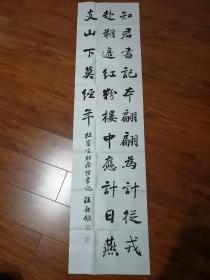 知君書記本翩翩為許從戎
赴朔邊紅粉樓中應計日燕
支山下莫經年
杜審言贈蘇綰書記 汪